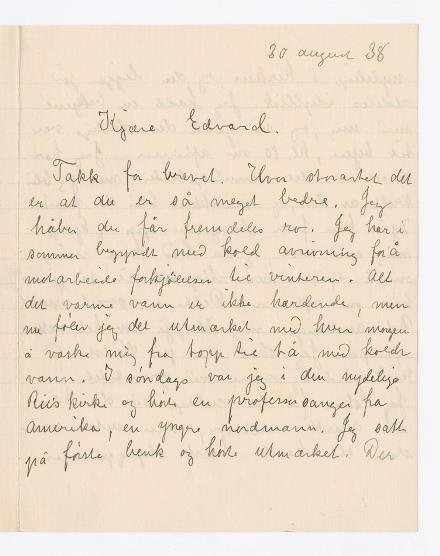 30 august 38
Kjære Edvard.
Takk for brevet. Hvor storartet det
er at du er så meget bedre. Jeg
håber du får fremdeles ro. Jeg har i
sommer begyndt med kold avrivning for å
motarbeide forkjølelsen til vinteren. Alt
det varme vann er ikke hærdende, men
nu føler jeg det utmærket med hver morgen
å vaske mig fra topp til tå med koldt
vann. I søndags var jeg i den nydelige
Riis kirke og hørte en professor sanger fra
Amerika, en yngre nordmann. Jeg satt
på første benk og hørte utmærket. Der